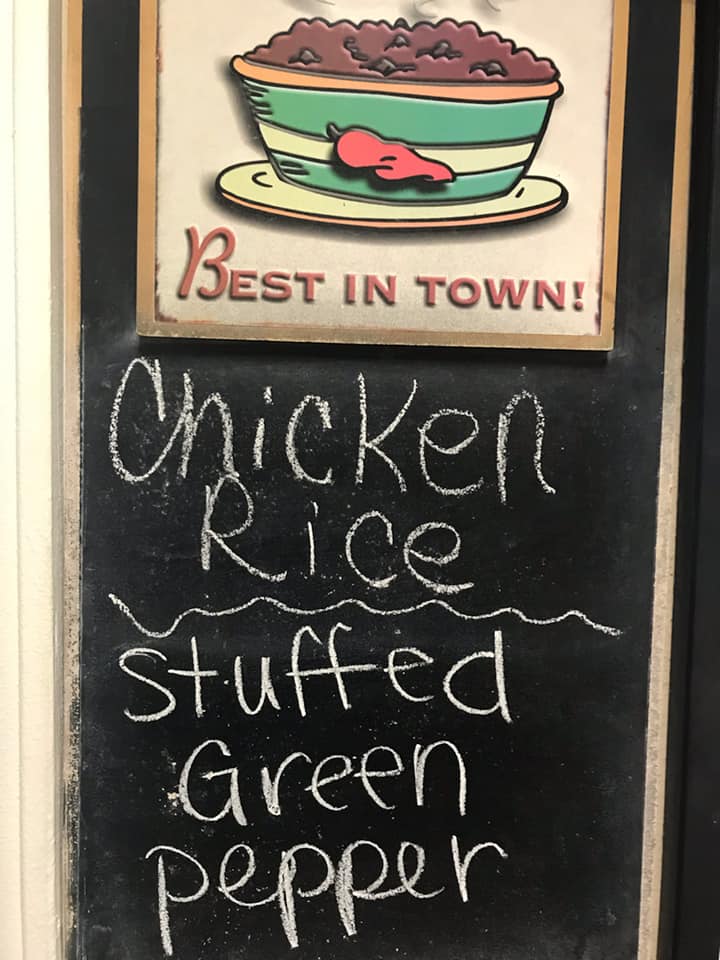 Best in town!
Chicken
Rice
Stuffed
Green
pepper